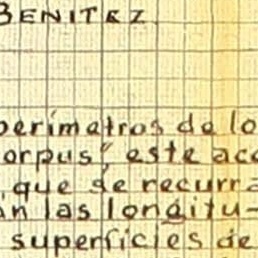 BENITEZ.
perímetros de lo
orpus", este acc
que se recurra
án las longitu-
superficies de